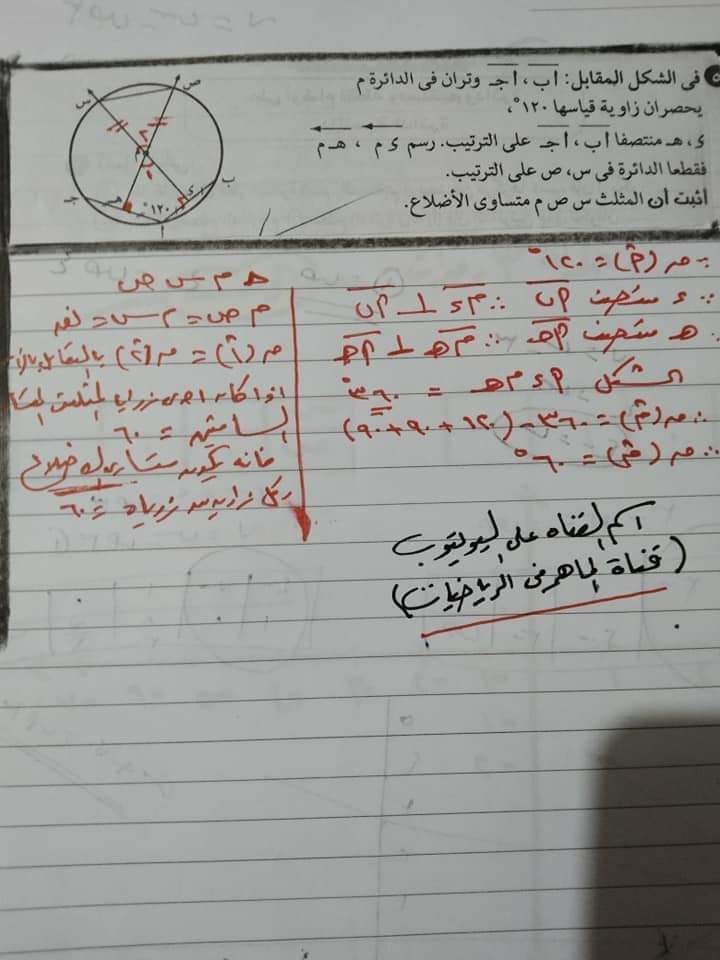 فى الشكل المقابل: أب ، أجـ وتران فى الدائرة م
يحصران زاوية قياسها ١٢٠°،
ء ، هـ منتصفا أب ، أجـ على الترتيب. رسم ءم ، هـ م
فقطعا الدائرة فى س، ص على الترتيب.
أثبت أن المثلث س ص م متساوى الأضلاع.
س
ص
٢
م
١
ب
ء
هـ
جـ
١٢٠°
أ
∵ مہ (أ) = ١٢٠°
∵ ء منتصف أب ∴ مء ⊥ أب
∵ هـ منتصف أهـ ∴ مهـ ⊥ أهـ
الشكل أء م هـ = ٣٦٠°
∴ مہ (م١) = ٣٦٠ - (١٢٠ + ٩٠ + ٩٠)
∴ مہ (م١) = ٦٠°
Δ م س ص
م ص = م س = نق
مہ (١) = مہ (٢) بالتقابل بالرأ
اذا كانه احدى زوايا المثلث المتسا
الساقين = ٦٠
فانه يكون متساوى الاضلاع
وكل زاويه من زوياه = ٦٠
اسم القناه على اليوتيوب
(قناة الماهر فى الرياضيات)